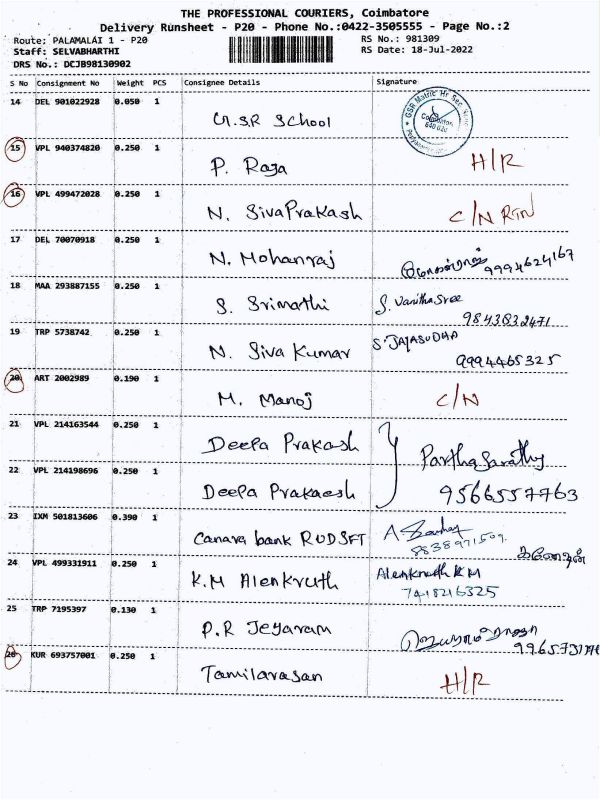 THE PROFESSIONAL COURIERS, Coimbatore
Delivery Runsheet - P20 - Phone No.:0422-3505555 - Page No.:2
Route: PALAMALAI 1 - P20 RS No.: 981309
Staff: SELVABHARTHI RS Date: 18-Jul-2022
DRS No.: DCJB98130902
S No Consignment No Weight PCS Consignee Details Signature
14 DEL 901022928 0.050 1 G.S.R School GSR Matric Hr Sec
15 VPL 940374820 0.250 1 P. Raja H/R
16 VPL 499472028 0.250 1 N. SivaPrakash C/N RTN
17 DEL 70070918 0.250 1 N. Mohanraj 9994624167
18 MAA 293887155 0.250 1 S. Srimathi S. Vanitha Sree
9843832471
19 TRP 5738742 0.250 1 N. Siva Kumar S. JAYASUDHA
9994465325
20 ART 2002989 0.190 1 M. Manoj C/N
21 VPL 214163544 0.250 1 Deepa Prakash Parthasarathy
22 VPL 214198696 0.250 1 Deepa Prakaesh 9566557763
23 IXM 501813606 0.390 1 Canara bank RUDSFT
8838971509
24 VPL 499331911 0.250 1 K.M Alenkruth Alenkruth K M
7418216325
25 TRP 7195397 0.130 1 P.R Jeyaram
26 KUR 693757001 0.250 1 Tamilarasan H/R